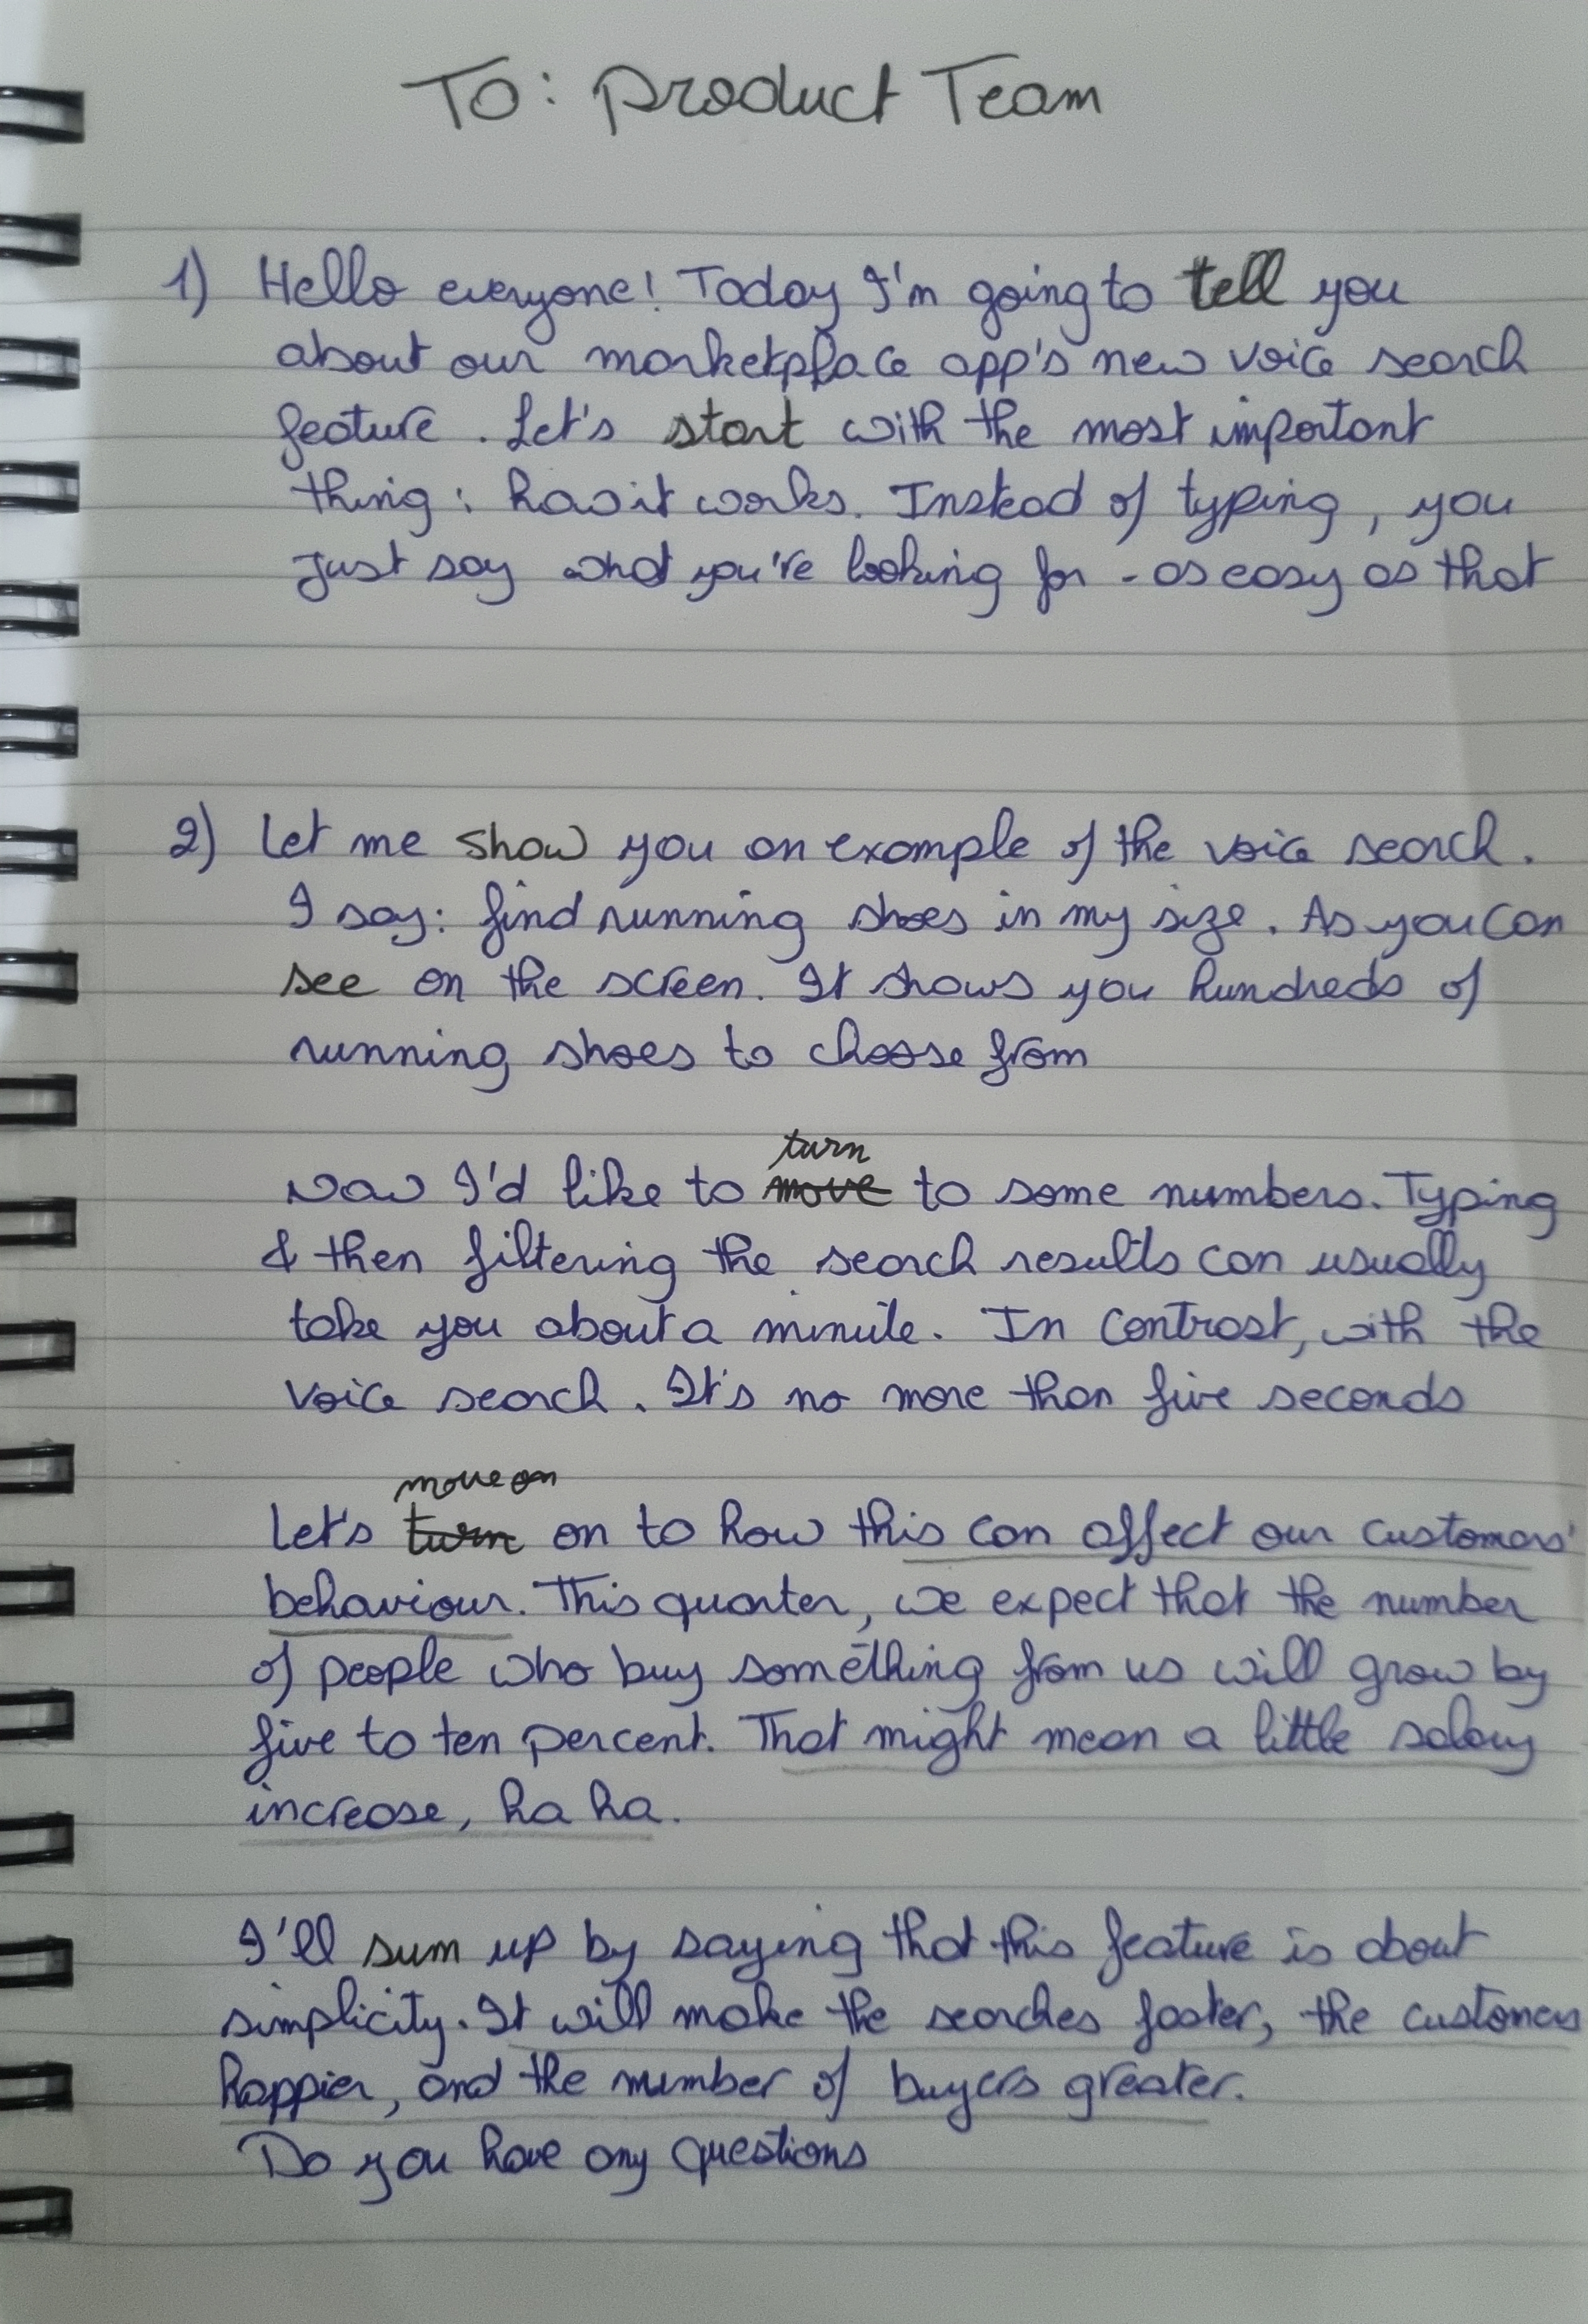 To: Product Team
1) Hello everyone! Today I'm going to tell you
about our marketplace app's new voice search
feature. Let's start with the most important
thing: how it works. Instead of typing, you
just say what you're looking for - as easy as that
2) Let me show you an example of the voice search.
I say: find running shoes in my size. As you can
see on the screen. It shows you hundreds of
running shoes to choose from
turn
Now I'd like to move to some numbers. Typing
& then filtering the search results can usually
take you about a minute. In contrast, with the
voice search. It's no more than five seconds
move on
Let's turn on to how this can affect our customers'
behaviour. This quarter, we expect that the number
of people who buy something from us will grow by
five to ten percent. That might mean a little salary
increase, ha ha.
I'll sum up by saying that this feature is about
simplicity. It will make the searches faster, the customers
happier, and the number of buyers greater.
Do you have any questions